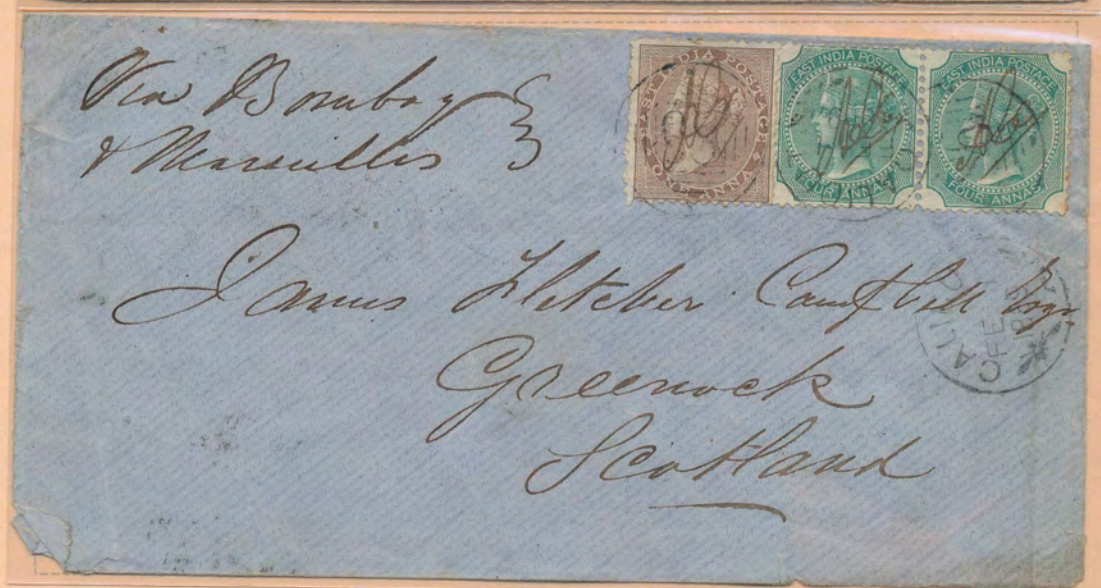 Via Bombay
& Marseilles
EAST INDIA POSTAGE
ONE ANNA
EAST INDIA POSTAGE
FOUR ANNAS
EAST INDIA POSTAGE
FOUR ANNAS
James Fletcher Campbell Esqr.
Greenock
Scotland